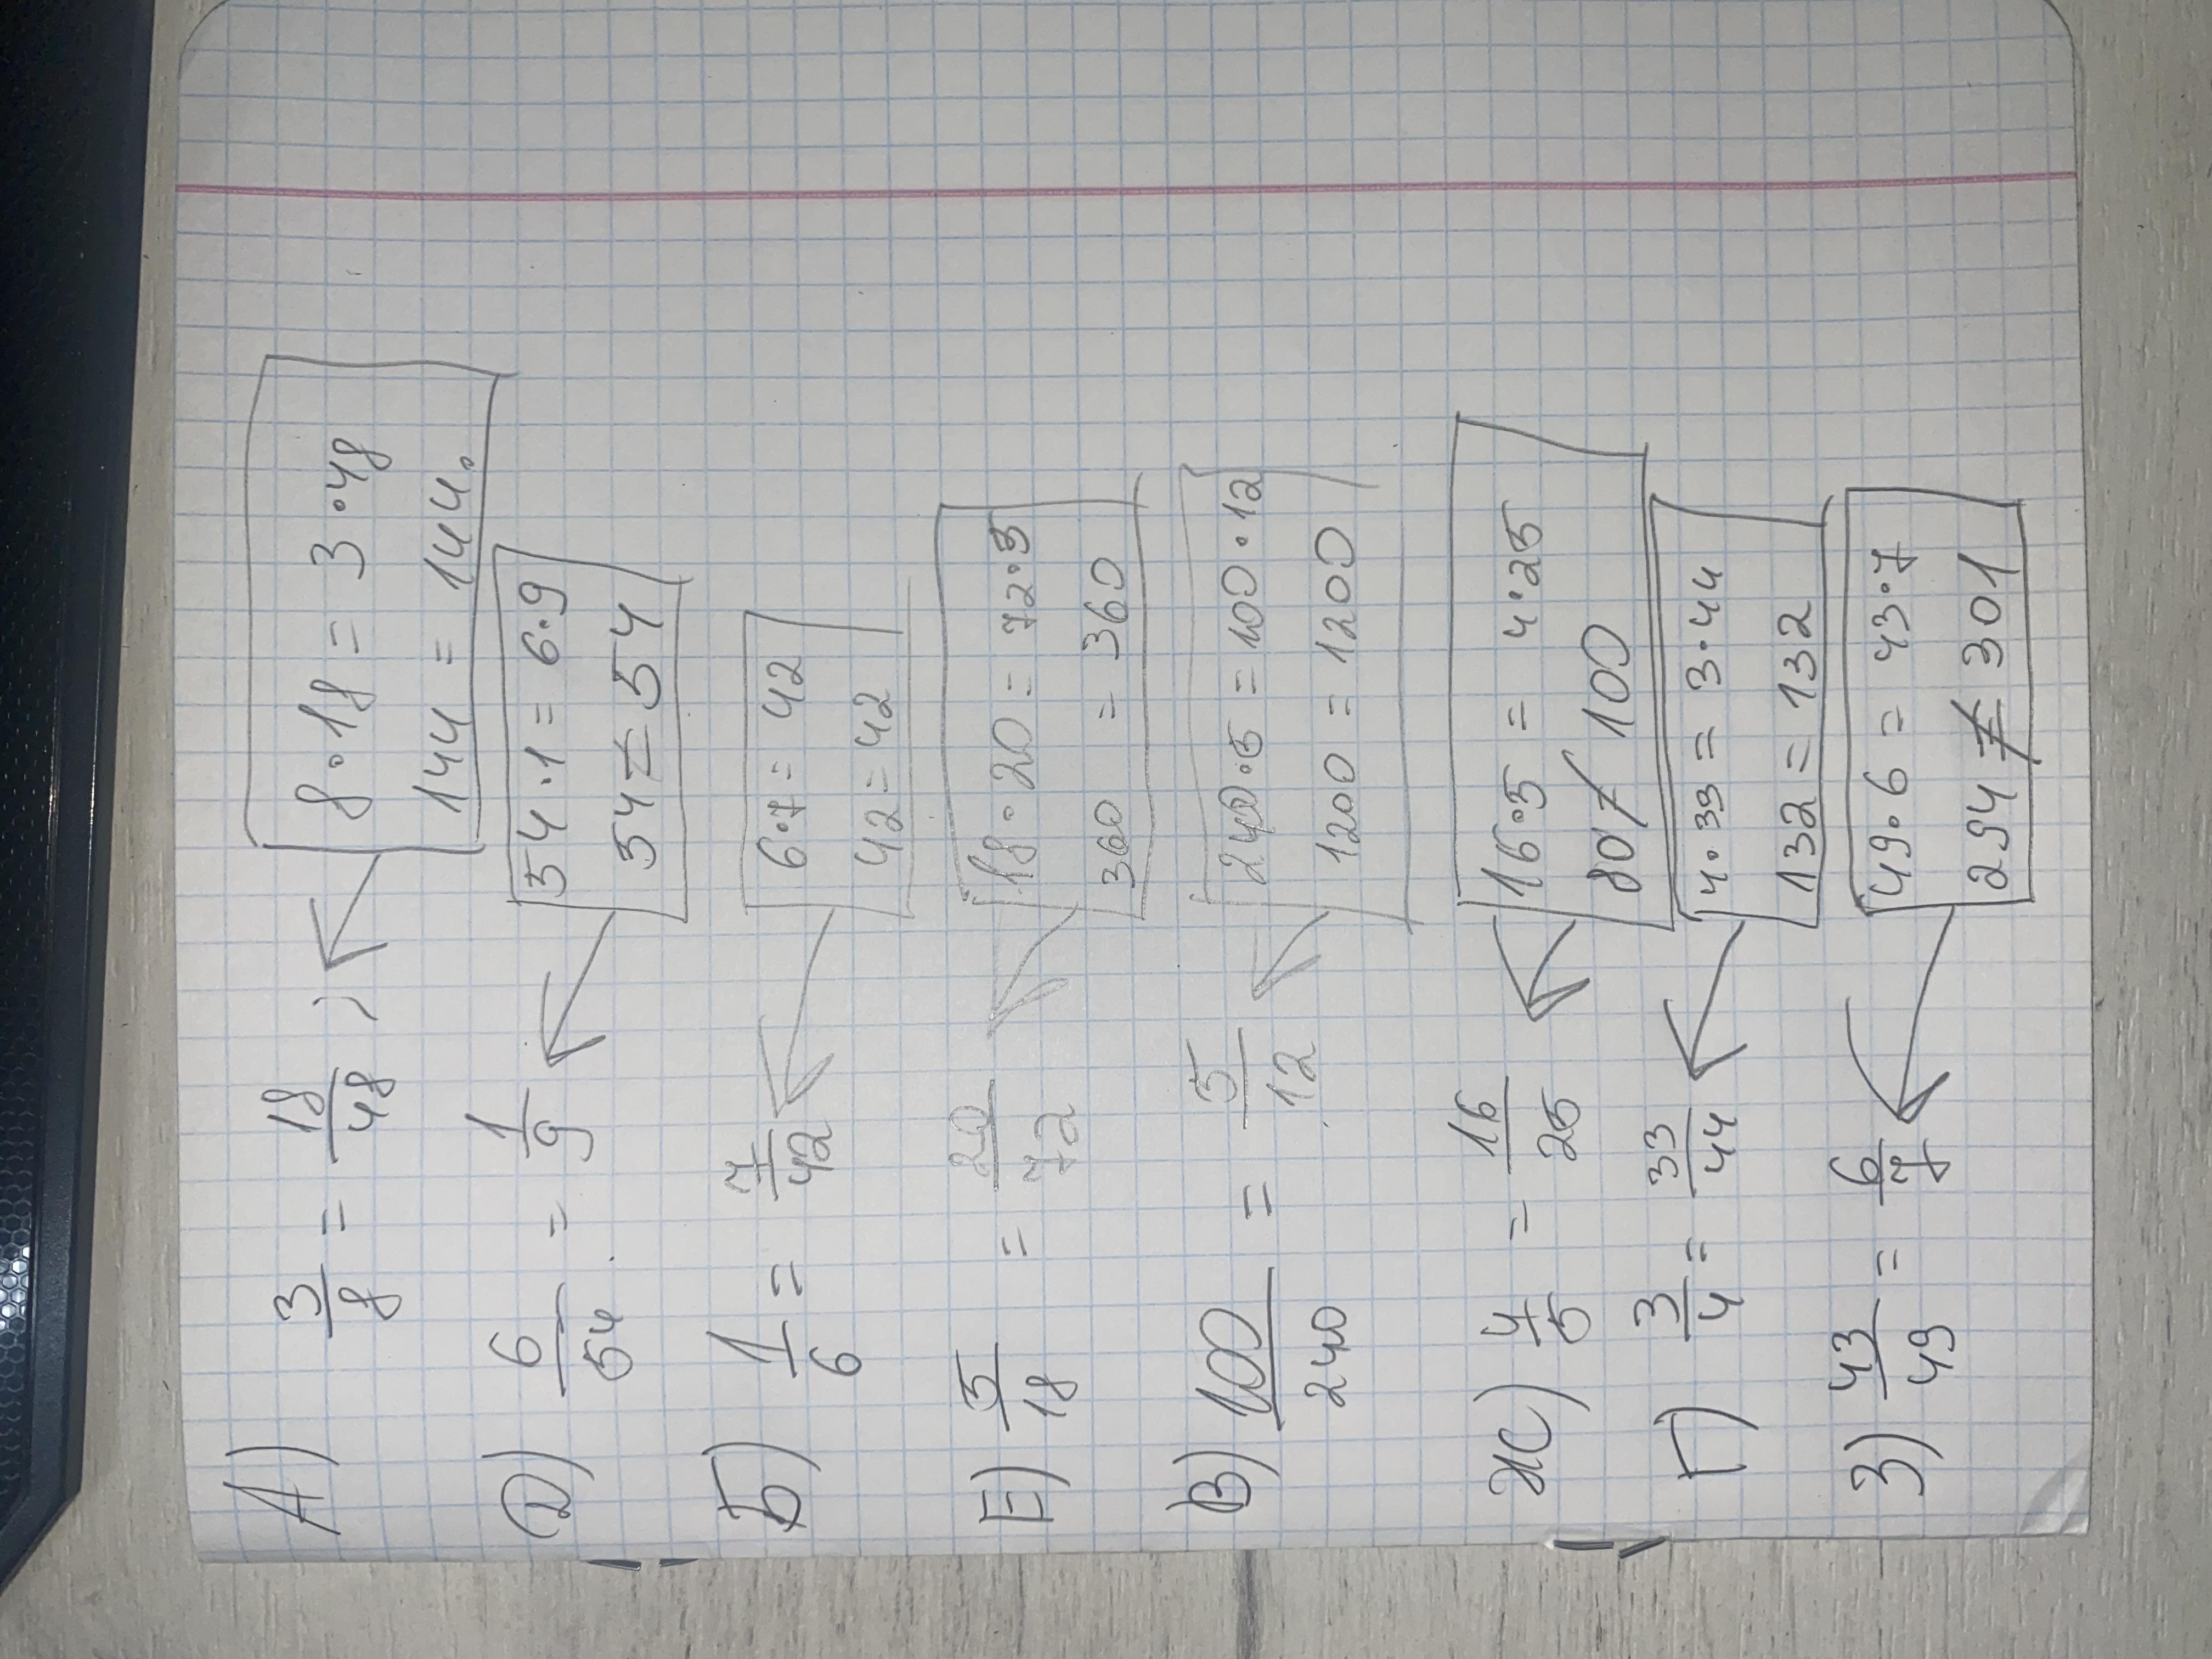 А) 3/8 = 18/48 , 8·18 = 3·48
144 = 144.
Д) 6/54 = 1/9 54·1 = 6·9
54 = 54
Б) 1/6 = 7/42 6·7 = 42
42 = 42
Е) 5/18 = 20/72 18·20 = 72·5
360 = 360
В) 100/240 = 5/12 240·5 = 100·12
1200 = 1200
Ж) 4/5 = 16/25 16·5 = 4·25
80 ≠ 100
Г) 3/4 = 33/44 4·33 = 3·44
132 = 132
З) 43/49 = 6/7 49·6 = 43·7
294 ≠ 301